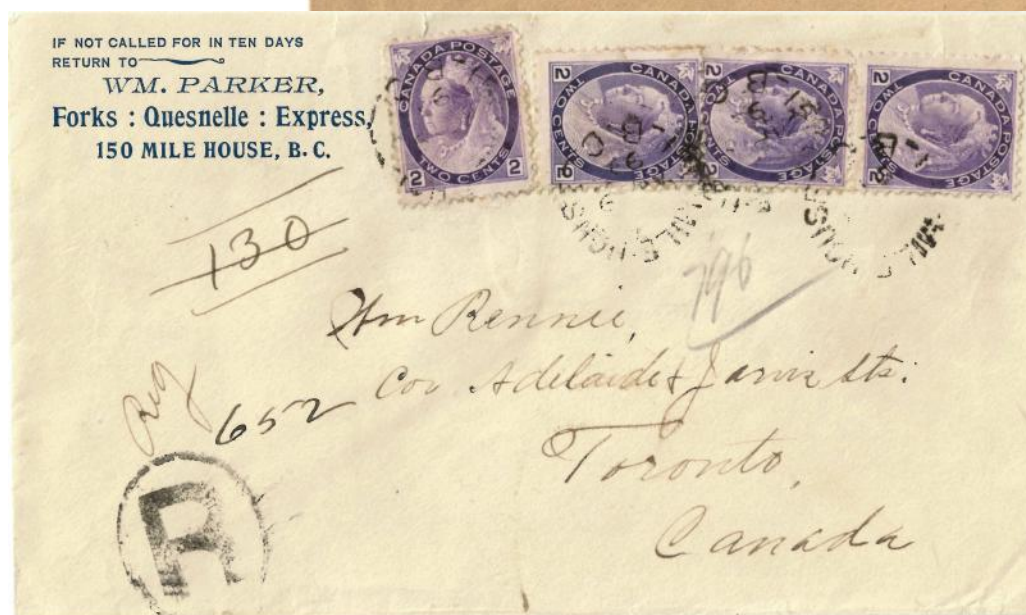 IF NOT CALLED FOR IN TEN DAYS
RETURN TO
WM. PARKER,
Forks : Quesnelle : Express,
150 MILE HOUSE, B. C.
CANADA POSTAGE
2 TWO CENTS 2
CANADA POSTAGE
2 TWO CENTS 2
CANADA POSTAGE
2 TWO CENTS 2
CANADA POSTAGE
2 TWO CENTS 2
130
796
Wm Rennie,
Cor Adelaide & Jarvis Sts:
Toronto,
Canada
Reg
652
R